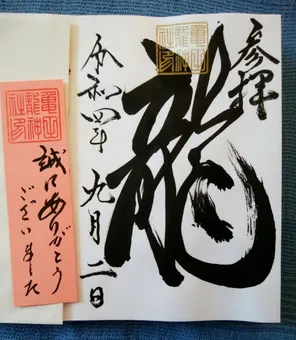 参拝
龍
令和四年九月二日
亀山
龍神
社印
誠にありがとう
ございました
亀山
龍神
社印